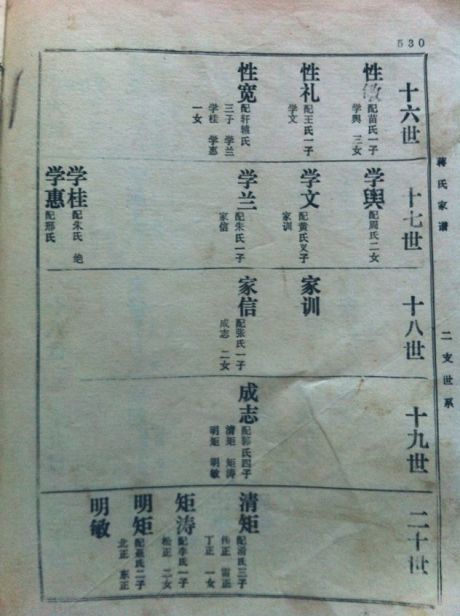 530
蒋氏家谱
二支世系
十六世
性敏
配苗氏一子
学舆 三女
性礼
配王氏一子
学文
性宽
配轩辕氏
三子 学兰
学桂 学惠
一女
十七世
学舆
配周氏二女
学文
配黄氏义子
家训
学兰
配朱氏一子
家信
学桂
配朱氏 绝
学惠
配邢氏
十八世
家训
家信
配张氏一子
成志 二女
十九世
成志
配郭氏四子
清矩 矩涛
明矩 明敏
二十世
清矩
三子
伟正 雷正
丁正 一女
矩涛
配李氏一子
松正 二女
明矩
配聂氏二子
北正 东正
明敏